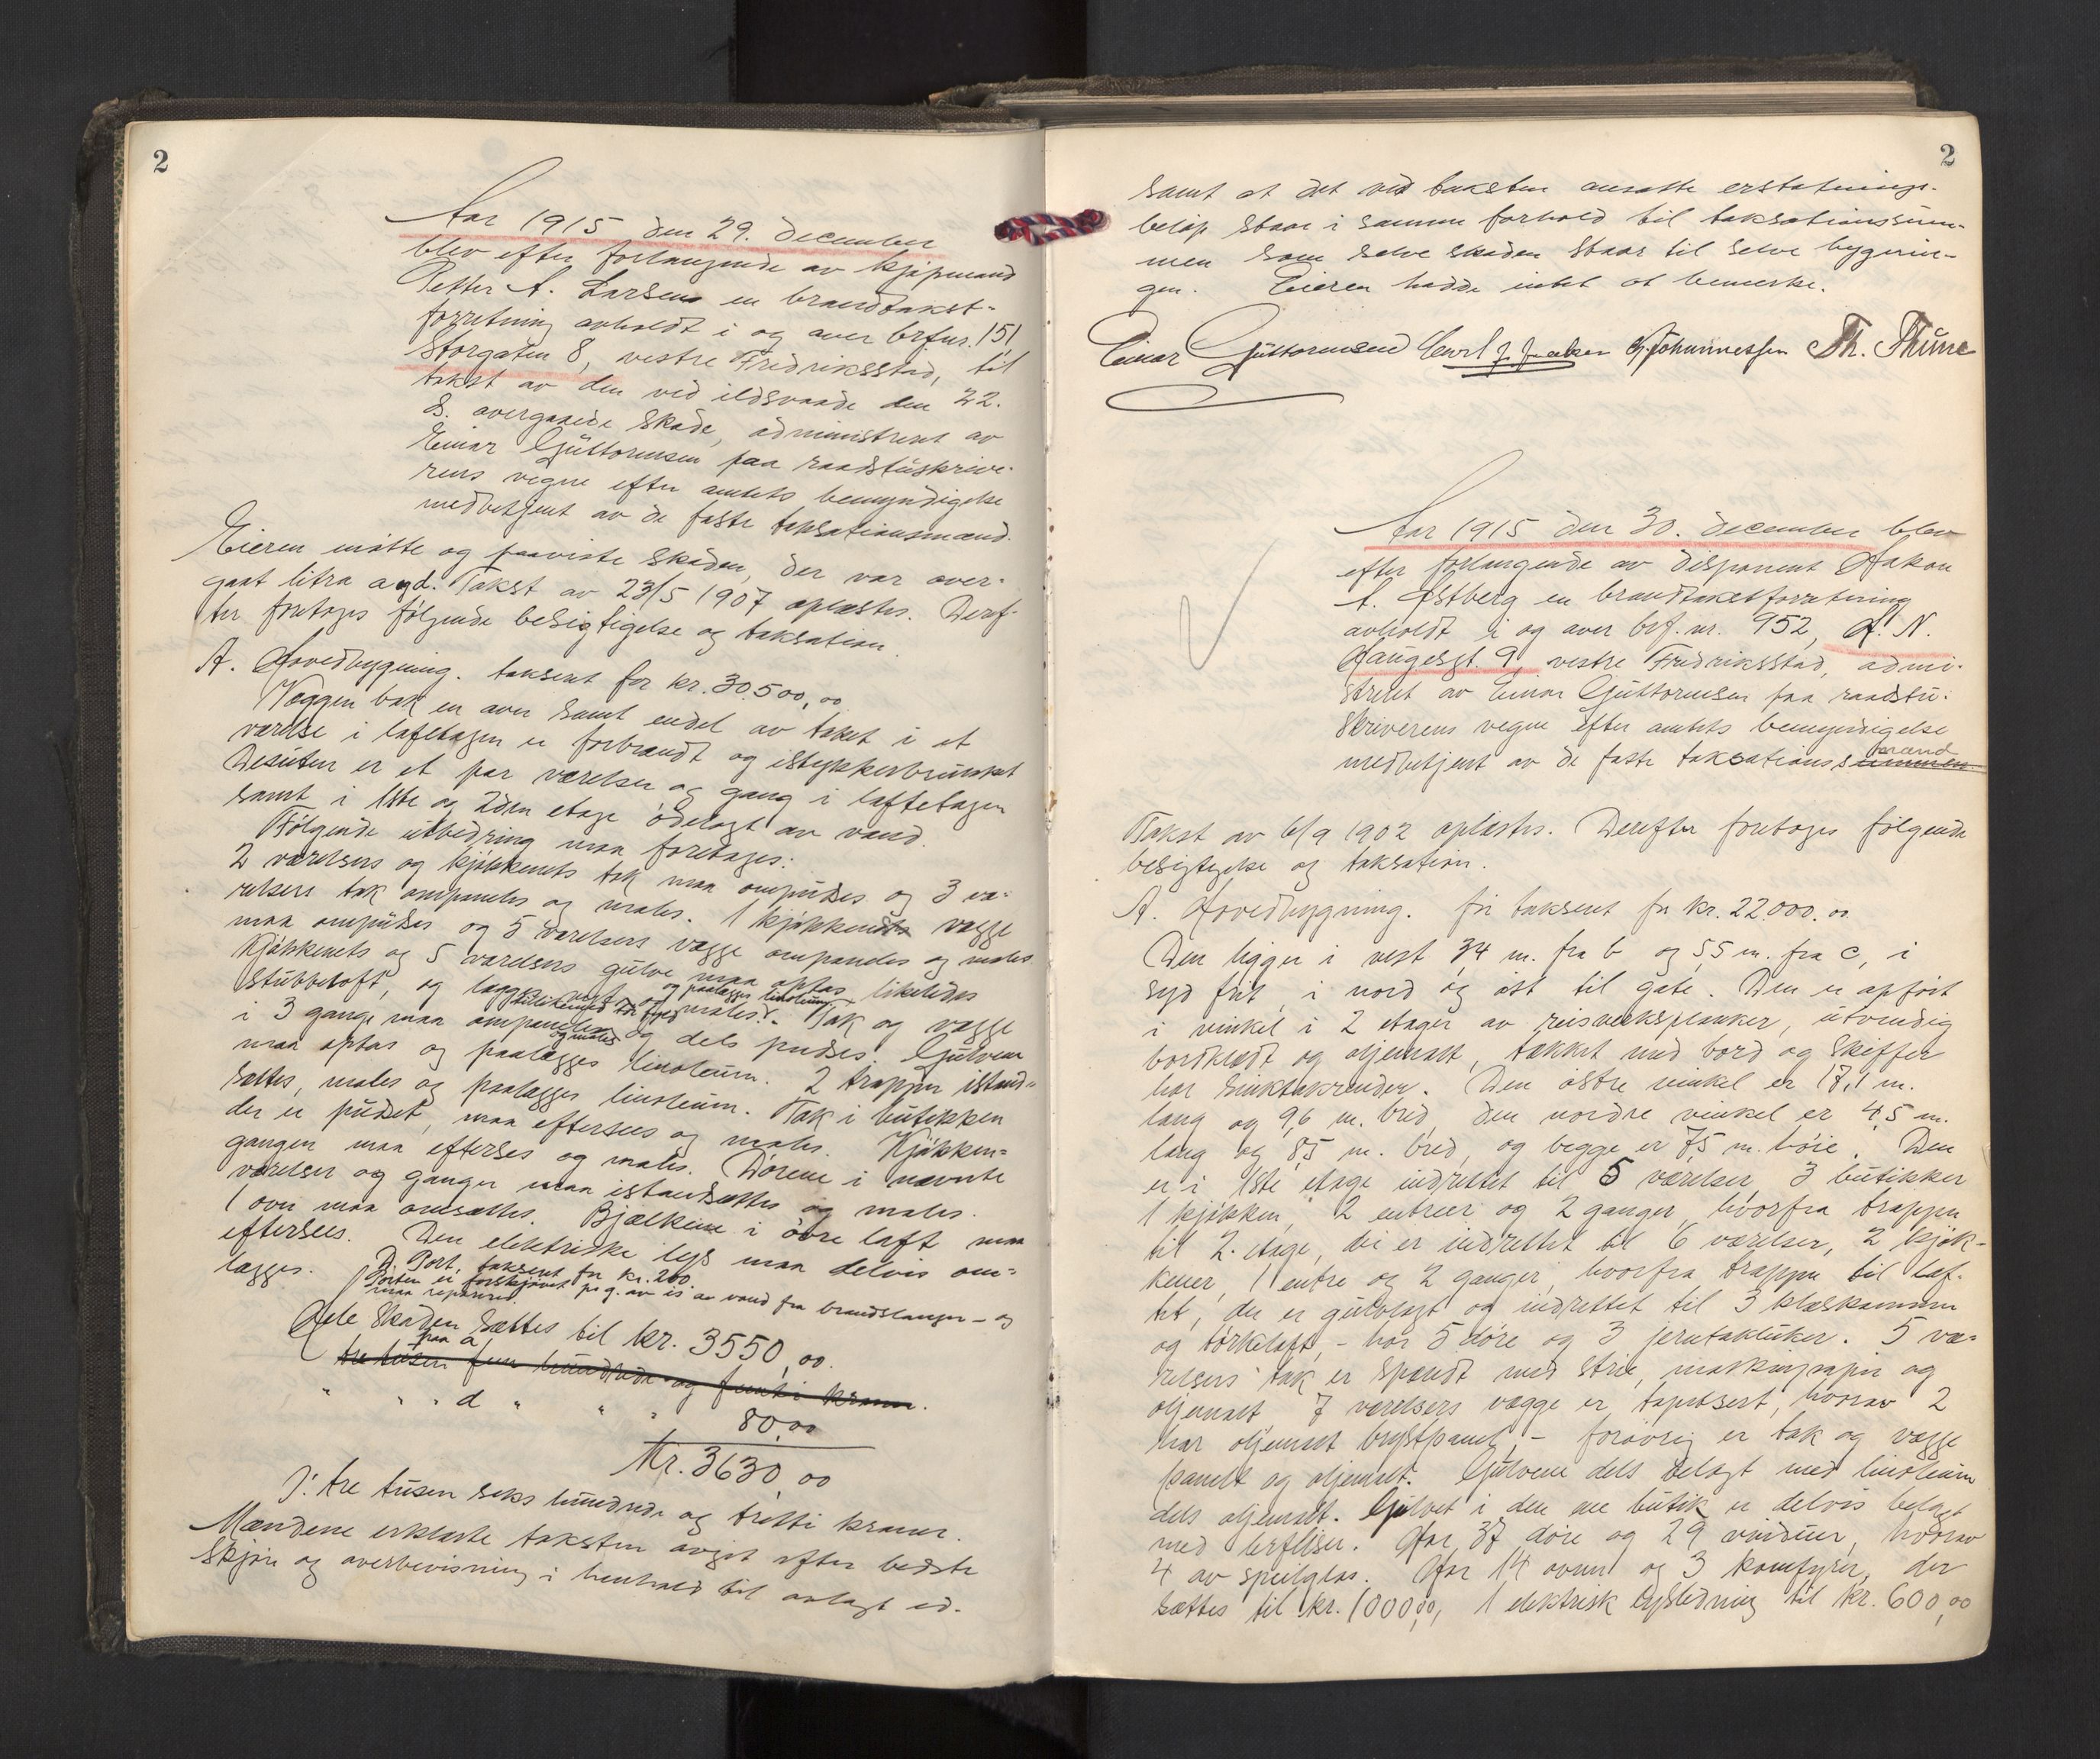 2
Aar 1915 den 29. december
blev efter forlangende av kjøpmand
Petter A. Larsen en brandtakst-
forretning avholdt i og over brfnr. 151,
Storgaten 8, vestre Fredriksstad, til
takst av den ved ildsvaade den 22.
s. overgaaede skade, administrert av
Einar Guttormsen paa raadstuskrive-
rens vegne efter amtets bemyndigelse
medbetjent av de faste taksationsmænd.
Eieren møtte og paaviste skaden, der var over-
gaat litra a og d. Takst av 23/5 1907 oplæstes. Deref-
ter foretoges følgende besigtigelse og taksation.
A. Hovedbygning. taksert for kr. 30.500,00
Væggen bak en oven samt endel av taket i et
værelse i loftetagen er forbrændt og istykkerbrukket
Desuten er et par værelser og gang i loftetagen
samt i 1ste og 2den etage ødelagt av vand.
Følgende utbedring maa foretages:
2 værelsers og kjøkkenets tak maa ompudses og 3 væ-
relsers tak ompanels og males. 1 kjøkkens vægge
maa ompudses og 5 værelsers vægge ompaneles og males
Kjøkkenets og 5 værelsers gulve maa optas likeledes
og paalægges linoleum
stubbeloft, og lægges males. Tak og vægge
i 3 gange maa ompaneles og dels pudses. Gulvene
og males
maa optas og paalægges linoleum. 2 trapper istand-
sættes, males og paalægges linoleum. Tak i butikken
der er pudset, maa eftersees og males. Kjøkken-
gangen maa efterses og males. Dørene i nævnte
værelser og ganger maa istandsættes og males.
1 oven maa omsættes. Bjælkene i øvre loft maa
eftersees. Den elektriske lys maa delvis om-
lægges.
D. Port, taksert for kr. 200.
Porten er forskjøvet pr g. av is av vand fra brandslanger - og
maa repareres.
Hele skaden sættes til kr. 3550,00.
paa a
tre tusen fem hundrede og femti kroner.
" " " d " " " 80,00
Kr. 3630,00
J: tre tusen seks hundrede og tretti kroner.
Mændene erklærte taksten avgit efter bedste
skjøn og overbevisning i henhold til avlagt ed.
2
samt at det ved taksten ansatte erstatnings-
beløp staar i samme forhold til taksationssum-
men som selve skaden staar til selve bygnin-
gen. Eieren hadde intet at bemerke.
Einar Guttormsen Carl J. Jacobsen Johannessen Th. Thune
Aar 1915 den 30. december blev
efter forlangende av disponent Hakon
A. Østberg en brandtakstforretning
avholdt i og over brf. nr. 952, H. N.
Haugesgt. 9, vestre Fredriksstad, admi-
strert av Einar Guttormsen paa raadstu-
skriverens vegne efter amtets bemyndigelse
mænd
medbetjent av de faste taksationssummen
Takst av 6/9 1902 oplæstes. Derefter foretoges følgende
besigtigelse og taksation.
A. Hovedbygning. før taksert for kr. 22.000.00
Den ligger i vest 3,4 m. fra b og 5,5 m. fra c, i
syd frit, i nord og øst til gate. Den er opført
i vinkel i 2 etager av reisverksplanker, utvendig
bordklædt og oljemalt, tækket med bord og skiffer
har sinktakrender. Den østre vinkel er 17,1 m.
lang og 9,6 m. bred, den nordre vinkel er 4,5 m.
lang og 8,5 m. bred, og begge er 7,5 m. høie. Den
er i 1ste etage indrettet til 5 værelser, 3 butikker
1 kjøkken, 2 entreer og 2 ganger, hvorfra trappen
til 2. etage, der er indrettet til 6 værelser, 2 kjøk-
kener, 1 entre og 2 ganger, hvorfra trappe til lof-
tet, der er gulvlagt og indrettet til 3 klæskammer
og tørkeloft, - har 5 døre og 3 jerntakluker. 5 væ-
relsers tak er spændt med strie, maskinpapir og
oljemalt, 7 værelsers vægge er tapetsert, hvorav 2
har oljemalt brystpanel, - forøvrig er tak og vægge
panelt og oljemalt. Gulvene dels belagt med linoleum
dels oljemalt. Gulvet i den ene butik er delvis belagt
med fliser. Har 37 døre og 29 vinduer, hvorav
4 av speilglas. Har 14 ovner og 3 komfyrer, der
sættes til kr. 1000,00, 1 elektrisk lysledning til kr. 600,00